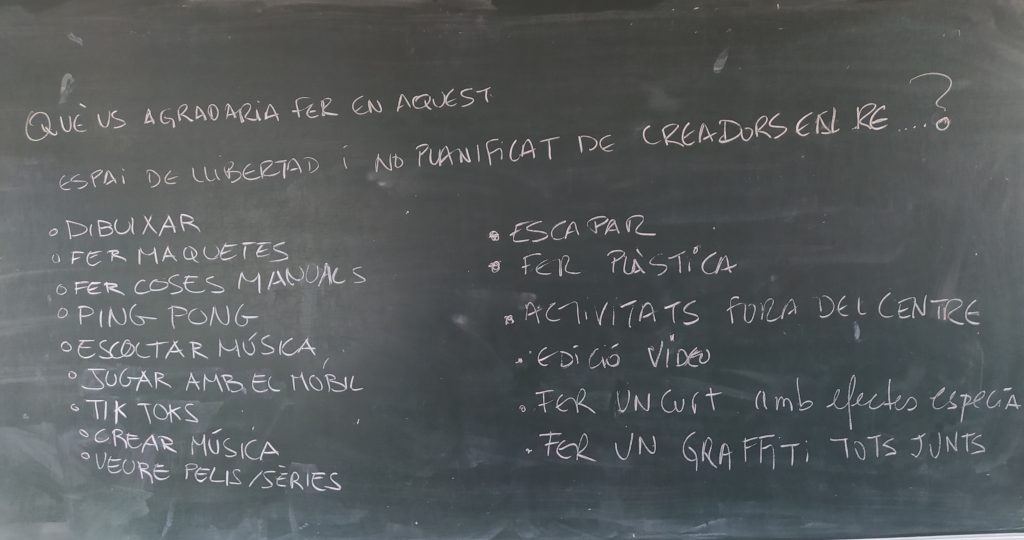 QUÈ US AGRADARIA FER EN AQUEST
ESPAI DE LLIBERTAD I NO PLANIFICAT DE CREADORS EN RE....?
• DIBUIXAR
• FER MAQUETES
• FER COSES MANUALS
• PING PONG
• ESCOLTAR MÚSICA
• JUGAR AMB EL MOBIL
• TIK TOKS
• CREAR MÚSICA
• VEURE PELIS/SÈRIES
• ESCAPAR
• FER PLÀSTICA
• ACTIVITATS FORA DEL CENTRE
• EDICIÓ VÍDEO
• FER UN CURT amb efectes especia
• FER UN GRAFFITI TOTS JUNTS